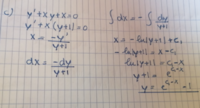 c) y' + xy + x = 0
y' + x(y+1) = 0
x = -y'/y+1
dx = -dy/y+1
∫dx = -∫dy/y+1
x = -ln|y+1| + c₁
-ln|y+1| = x - c₁
ln|y+1| = c₁ - x
y+1 = e^(c₁-x)
y = e^(c₁-x) - 1